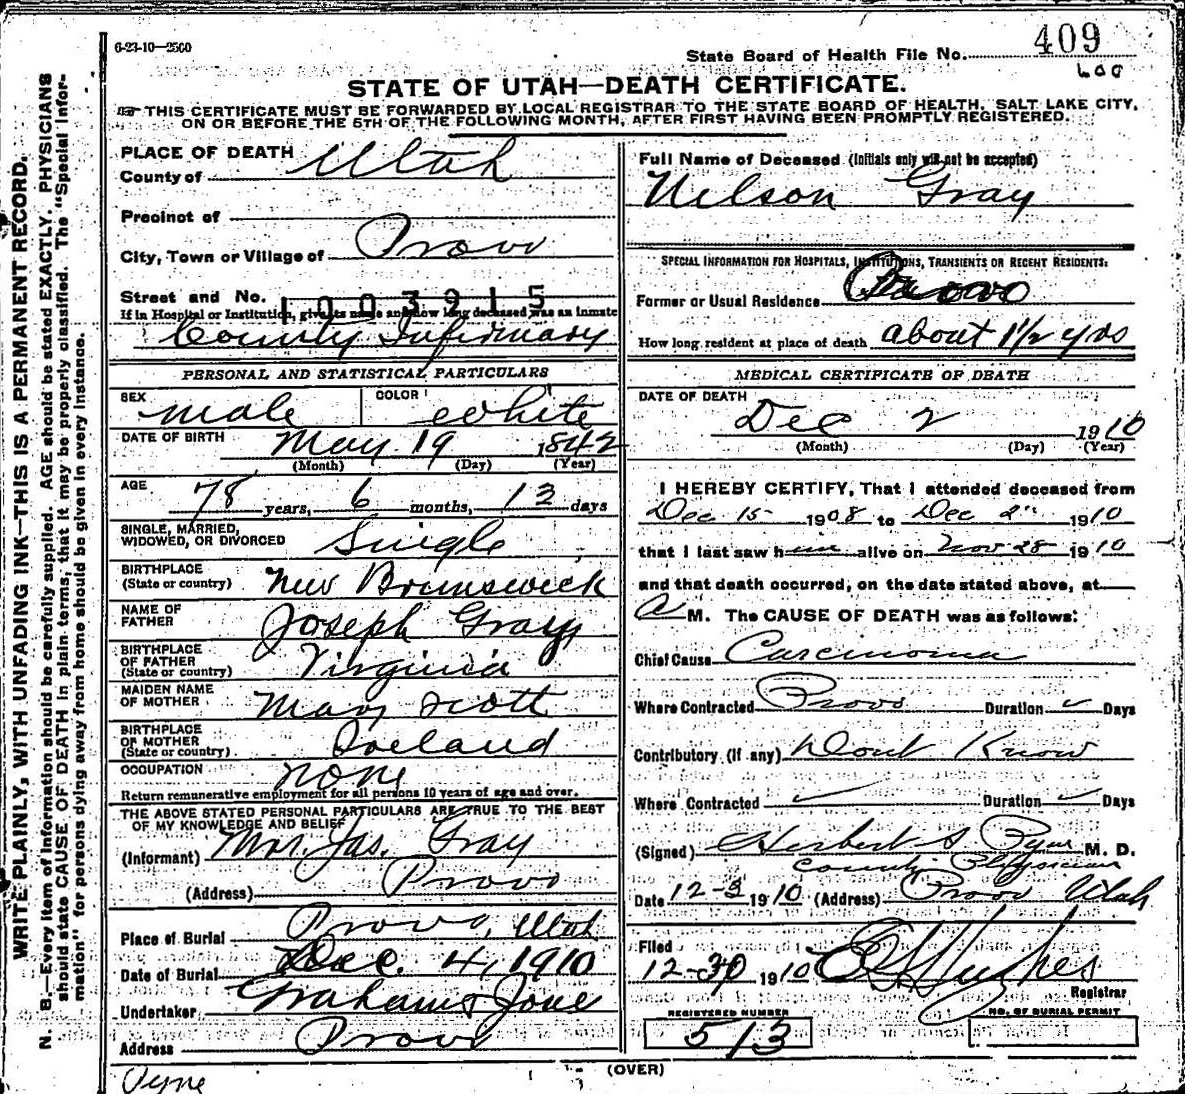 6-23-10—2500
State Board of Health File No. 409
600
STATE OF UTAH—DEATH CERTIFICATE.
THIS CERTIFICATE MUST BE FORWARDED BY LOCAL REGISTRAR TO THE STATE BOARD OF HEALTH, SALT LAKE CITY,
ON OR BEFORE THE 5TH OF THE FOLLOWING MONTH, AFTER FIRST HAVING BEEN PROMPTLY REGISTERED.
WRITE PLAINLY, WITH UNFADING INK—THIS IS A PERMANENT RECORD.
N. B.—Every item of information should be carefully supplied. AGE should be stated EXACTLY. PHYSICIANS
should state CAUSE OF DEATH in plain terms, that it may be properly classified. The "Special Infor-
mation" for persons dying away from home should be given in every instance.
PLACE OF DEATH
County of Utah
Precinct of
City, Town or Village of Provo
Street and No. 1003915
If in Hospital or Institution, give its name and how long deceased was an inmate
County Infirmary
PERSONAL AND STATISTICAL PARTICULARS
SEX male COLOR white
DATE OF BIRTH May 19 1842
(Month) (Day) (Year)
AGE 78 years, 6 months, 13 days
SINGLE, MARRIED,
WIDOWED, OR DIVORCED Single
BIRTHPLACE
(State or country) New Brunswick
NAME OF
FATHER Joseph Gray
BIRTHPLACE
OF FATHER
(State or country) Virginia
MAIDEN NAME
OF MOTHER Mary Scott
BIRTHPLACE
OF MOTHER
(State or country) Ireland
OCCUPATION none
Return remunerative employment for all persons 10 years of age and over.
THE ABOVE STATED PERSONAL PARTICULARS ARE TRUE TO THE BEST
OF MY KNOWLEDGE AND BELIEF
(Informant) Mrs. Jas. Gray
(Address) Provo
Place of Burial Provo, Utah
Date of Burial Dec. 4, 1910
Undertaker Graham & Jone
Address Provo
Pyne
Full Name of Deceased (Initials only will not be accepted)
Nelson Gray
SPECIAL INFORMATION FOR HOSPITALS, INSTITUTIONS, TRANSIENTS OR RECENT RESIDENTS:
Former or Usual Residence Provo
How long resident at place of death about 1 1/2 yrs
MEDICAL CERTIFICATE OF DEATH
DATE OF DEATH
Dec 2 1910
(Month) (Day) (Year)
I HEREBY CERTIFY, That I attended deceased from
Dec 15 1908 to Dec 2" 1910
that I last saw him alive on Nov 28 1910
and that death occurred, on the date stated above, at
A M. The CAUSE OF DEATH was as follows:
Chief Cause Carcinoma
Where Contracted Provo Duration ✓ Days
Contributory (if any) Dont Know
Where Contracted ✓ Duration ✓ Days
(Signed) Herbert S Pyne M. D.
County Physician
Date 12-3 1910 (Address) Provo Utah
Filed
12-30 1910 Hughes
Registrar
REGISTERED NUMBER
513
NO. OF BURIAL PERMIT
(OVER)